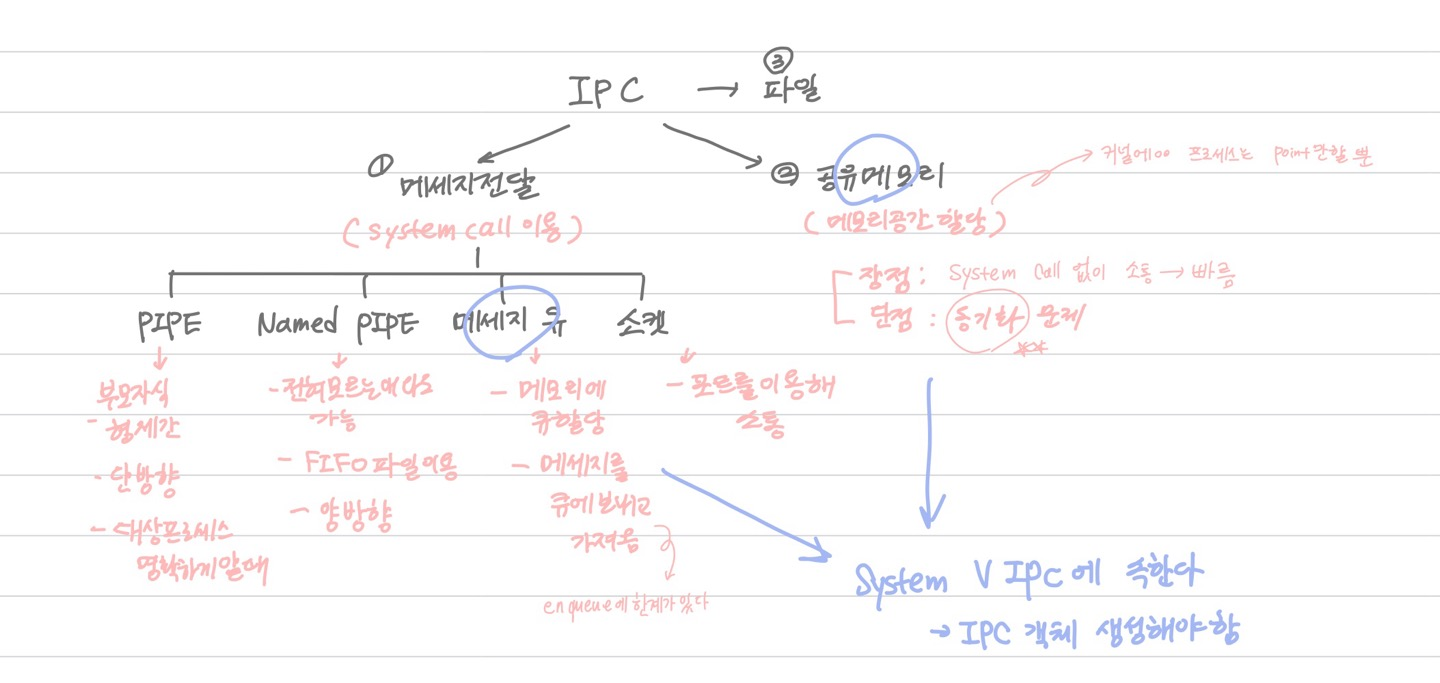 IPC → ③ 파일
① 메세지전달
② 공유메모리
커널에 ㅇㅇ 프로세스는 point만할 뿐
(system call 이용)
(메모리공간 할당)
장점 : System Call 없이 소통 → 빠름
단점 : 동기화 문제
PIPE
Named PIPE
메세지 큐
소켓
부모자식
- 형제간
- 단방향
- 대상프로세스
명확하게알때
- 전혀모르는애더라도
가능
- FIFO 파일이용
- 양방향
- 메모리에
큐할당
- 메세지를
큐에보내고
가져옴
enqueue에 한계가 있다
- 포트를이용해
소통
System V IPC에 속한다
→ IPC 객체 생성해야함